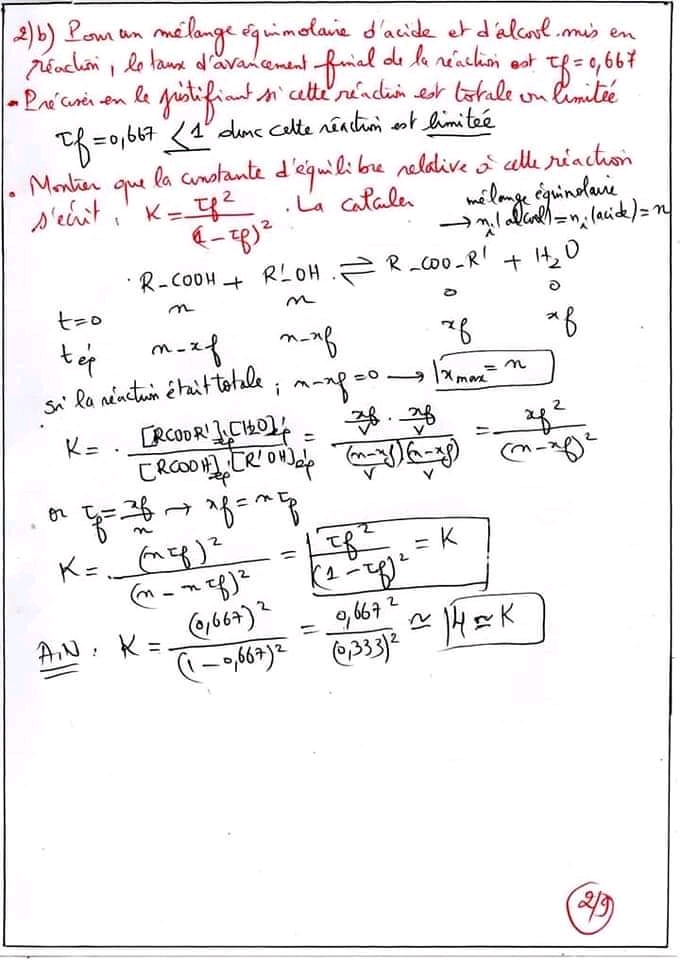 2)b) Pour un mélange équimolaire d'acide et d'alcool mis en
réaction, le taux d'avancement final de la réaction est τf = 0,667
- Préciser en le justifiant si cette réaction est totale ou limitée
τf = 0,667 < 1 donc cette réaction est limitée
• Montrer que la constante d'équilibre relative à cette réaction
s'écrit, K = τf² / (1 - τf)² . La calculer
mélange équimolaire
→ ni(alcool) = ni(acide) = n
R-COOH + R'-OH ⇌ R-COO-R' + H₂O
t=0 n n 0 0
t ép n-xf n-xf xf xf
si la réaction était totale ; n-xf = 0 → xmax = n
K = [RCOOR']ép.[H2O]ép / [RCOOH]ép.[R'OH]ép = (xf/V . xf/V) / ((n-xf)/V (n-xf)/V) = xf² / (n-xf)²
or τf = xf/n → xf = n τf
K = (nτf)² / (n - nτf)² = τf² / (1 - τf)² = K
A.N. K = (0,667)² / (1 - 0,667)² = 0,667² / (0,333)² ≃ 4 ≃ K
2/9